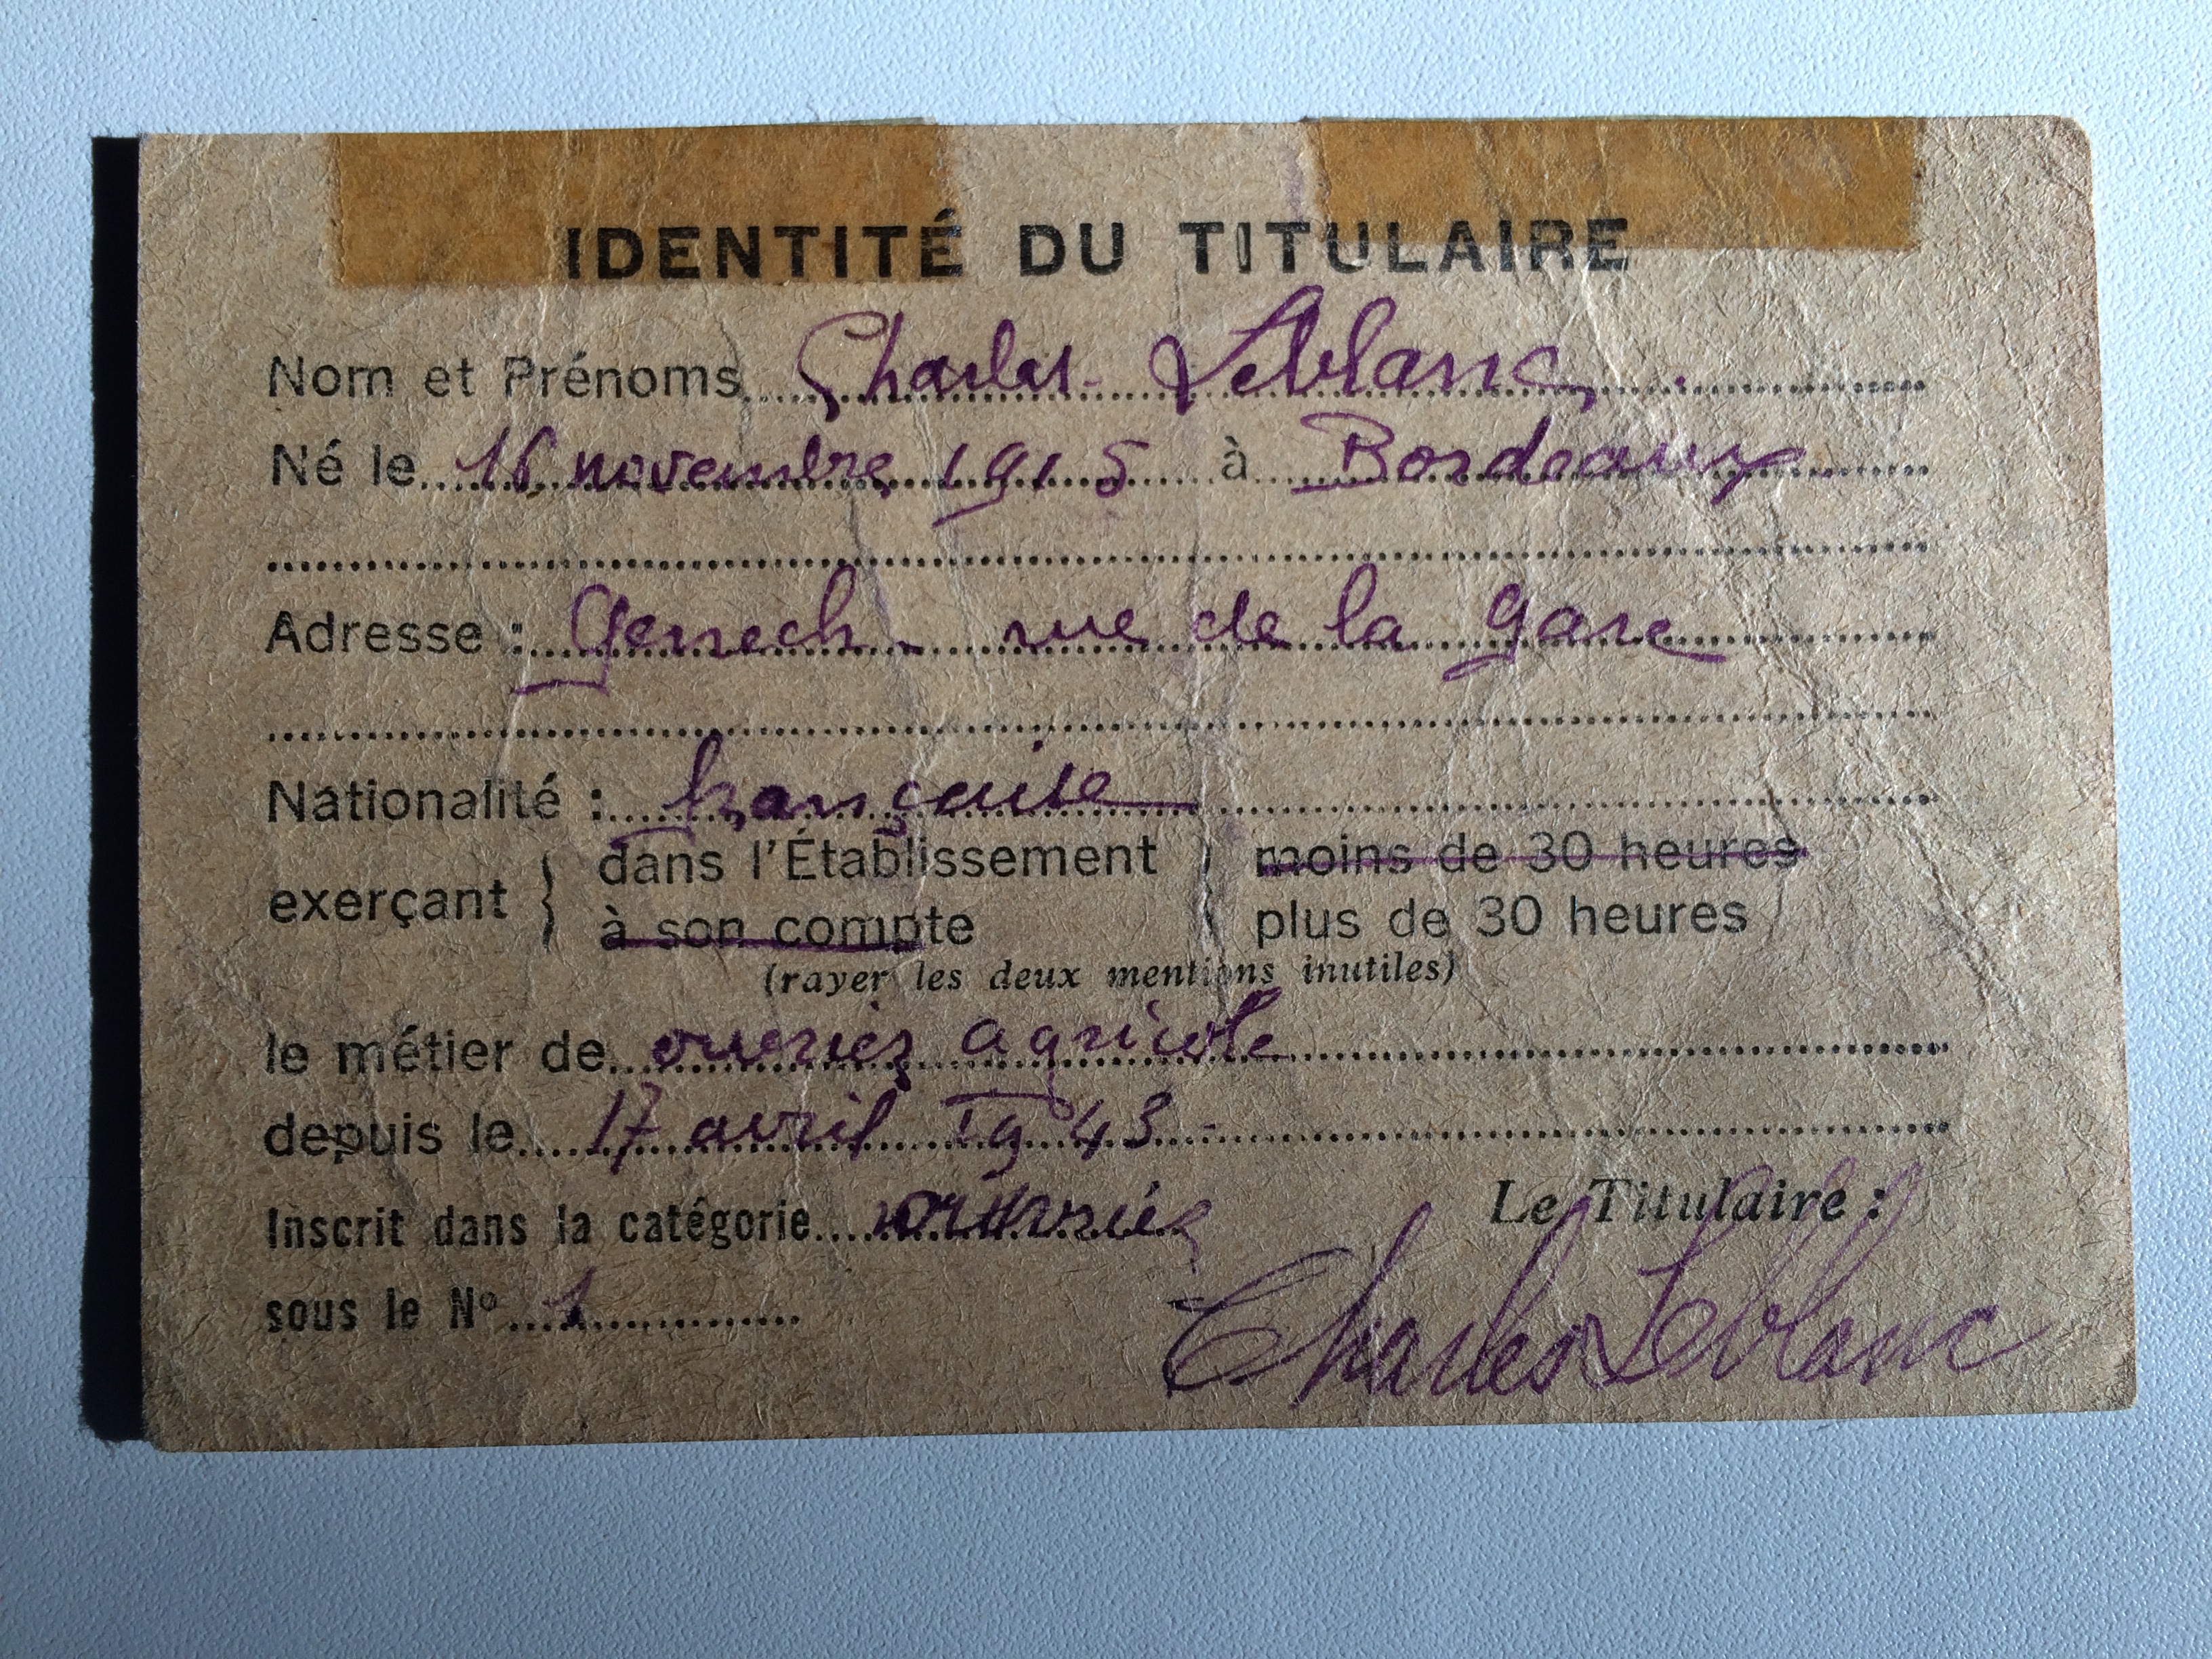 IDENTITÉ DU TITULAIRE
Nom et Prénoms Charles Leblanc
Né le 16 novembre 1915 à Bordeaux
Adresse : Genech - rue de la gare
Nationalité : française
exerçant } dans l'Établissement } moins de 30 heures
à son compte plus de 30 heures
(rayer les deux mentions inutiles)
le métier de ouvrier agricole
depuis le 17 avril 1943 -
Inscrit dans la catégorie
sous le N° 1
Le Titulaire :
Charles Leblanc